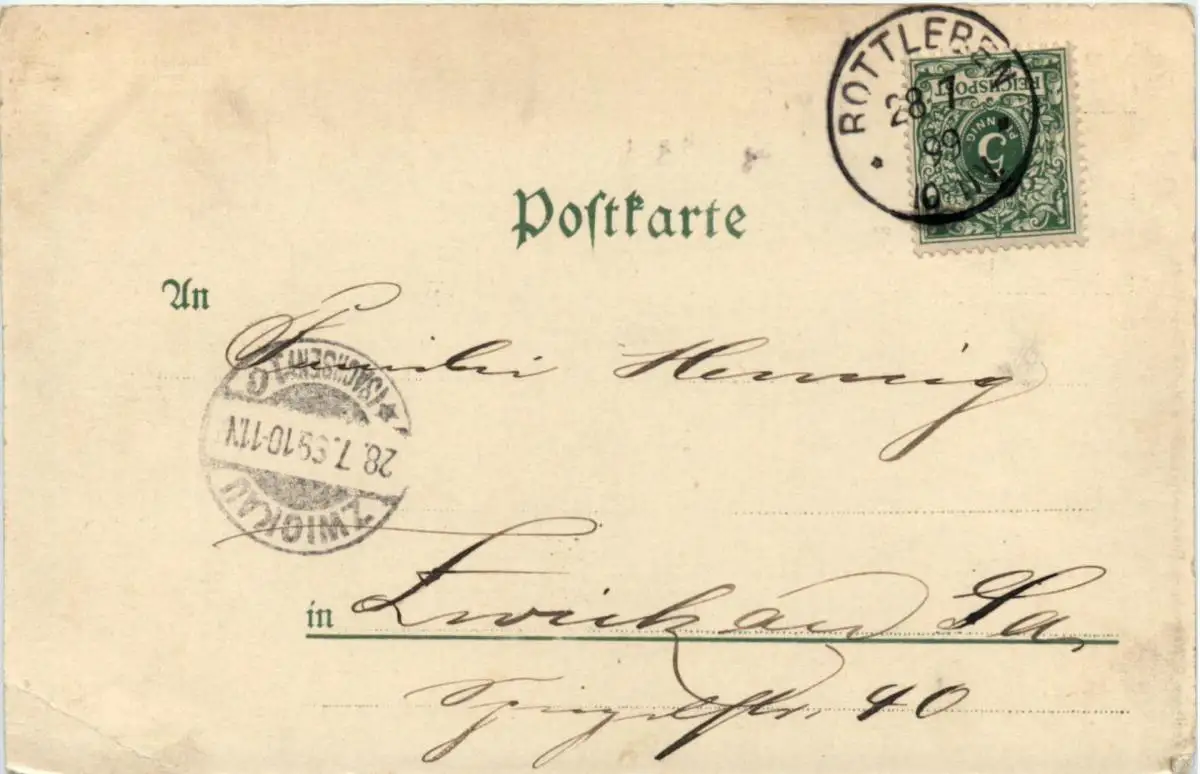 ROTTLEBEN
28 7
99
REICHSPOST
5
PFENNIG
Postkarte
An
Familie Hennig
ZWICKAU
(SACHSEN) 1 C
28.7.99 10-11N
in Zwickau Sa,
40